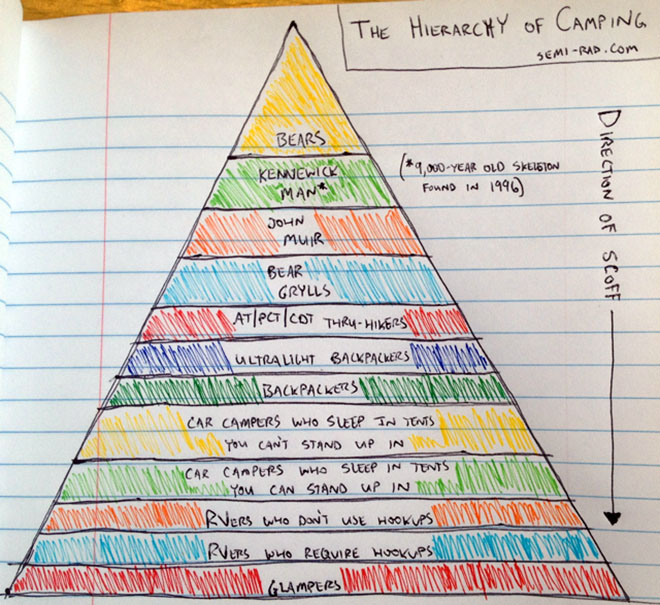 THE HIERARCHY OF CAMPING
SEMI-RAD.COM
BEARS
KENNEWICK
MAN*
(*9,000-YEAR OLD SKELETON
FOUND IN 1996)
JOHN
MUIR
BEAR
GRYLLS
AT/PCT/CDT THRU-HIKERS
ULTRALIGHT BACKPACKERS
BACKPACKERS
CAR CAMPERS WHO SLEEP IN TENTS
YOU CAN'T STAND UP IN
CAR CAMPERS WHO SLEEP IN TENTS
YOU CAN STAND UP IN
RVERS WHO DON'T USE HOOKUPS
RVERS WHO REQUIRE HOOKUPS
GLAMPERS
DIRECTION OF SCOFF